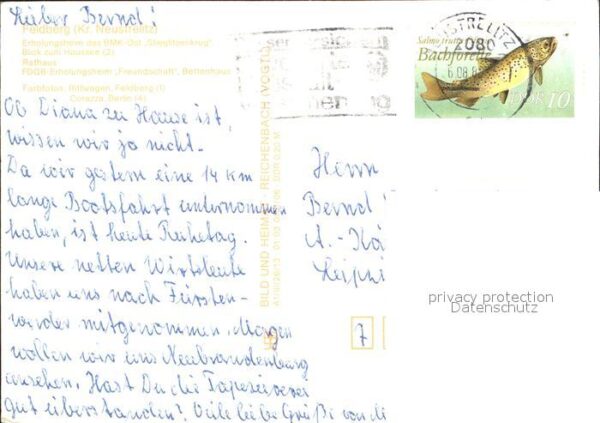 Lieber Bernd!
Feldberg (Kr. Neustrelitz)
Erholungsheim des BMK-Ost "Stieglitzenkrug"
Blick zum Haussee (2)
Rathaus
FDGB-Erholungsheim "Freundschaft", Bettenhaus
Farbfotos: Ihlwagen, Feldberg (1)
Corazza, Berlin (4)
Ob Diana zu Hause ist,
wissen wir ja nicht.
Da wir gestern eine 14 km
lange Bootsfahrt unternommen
haben, ist heute Ruhetag.
Unsere netten Wirtsleute
haben uns nach Fürsten-
werder mitgenommen. Morgen
wollen wir uns Neubrandenburg
ansehen. Hast Du die Tapeziererei
gut überstanden? Viele liebe Grüße von
BILD UND HEIMAT REICHENBACH (VOGTL)
NEUSTRELITZ
2080
Salmo trutta
Bachforelle
DDR 10
Herrn
Bernd
A.-
Leipzi
7
privacy protection
Datenschutz